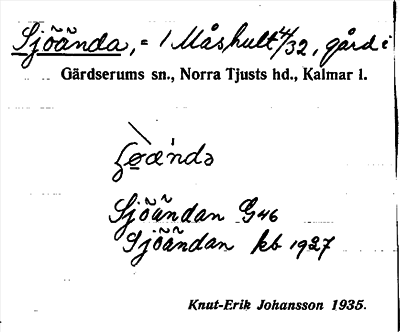 Sjöända, = 1 Måshult 4/32, gård i
Gärdserums sn., Norra Tjusts hd., Kalmar l.
Sjöändan G46
Sjöändan kb 1927
Knut-Erik Johansson 1935.